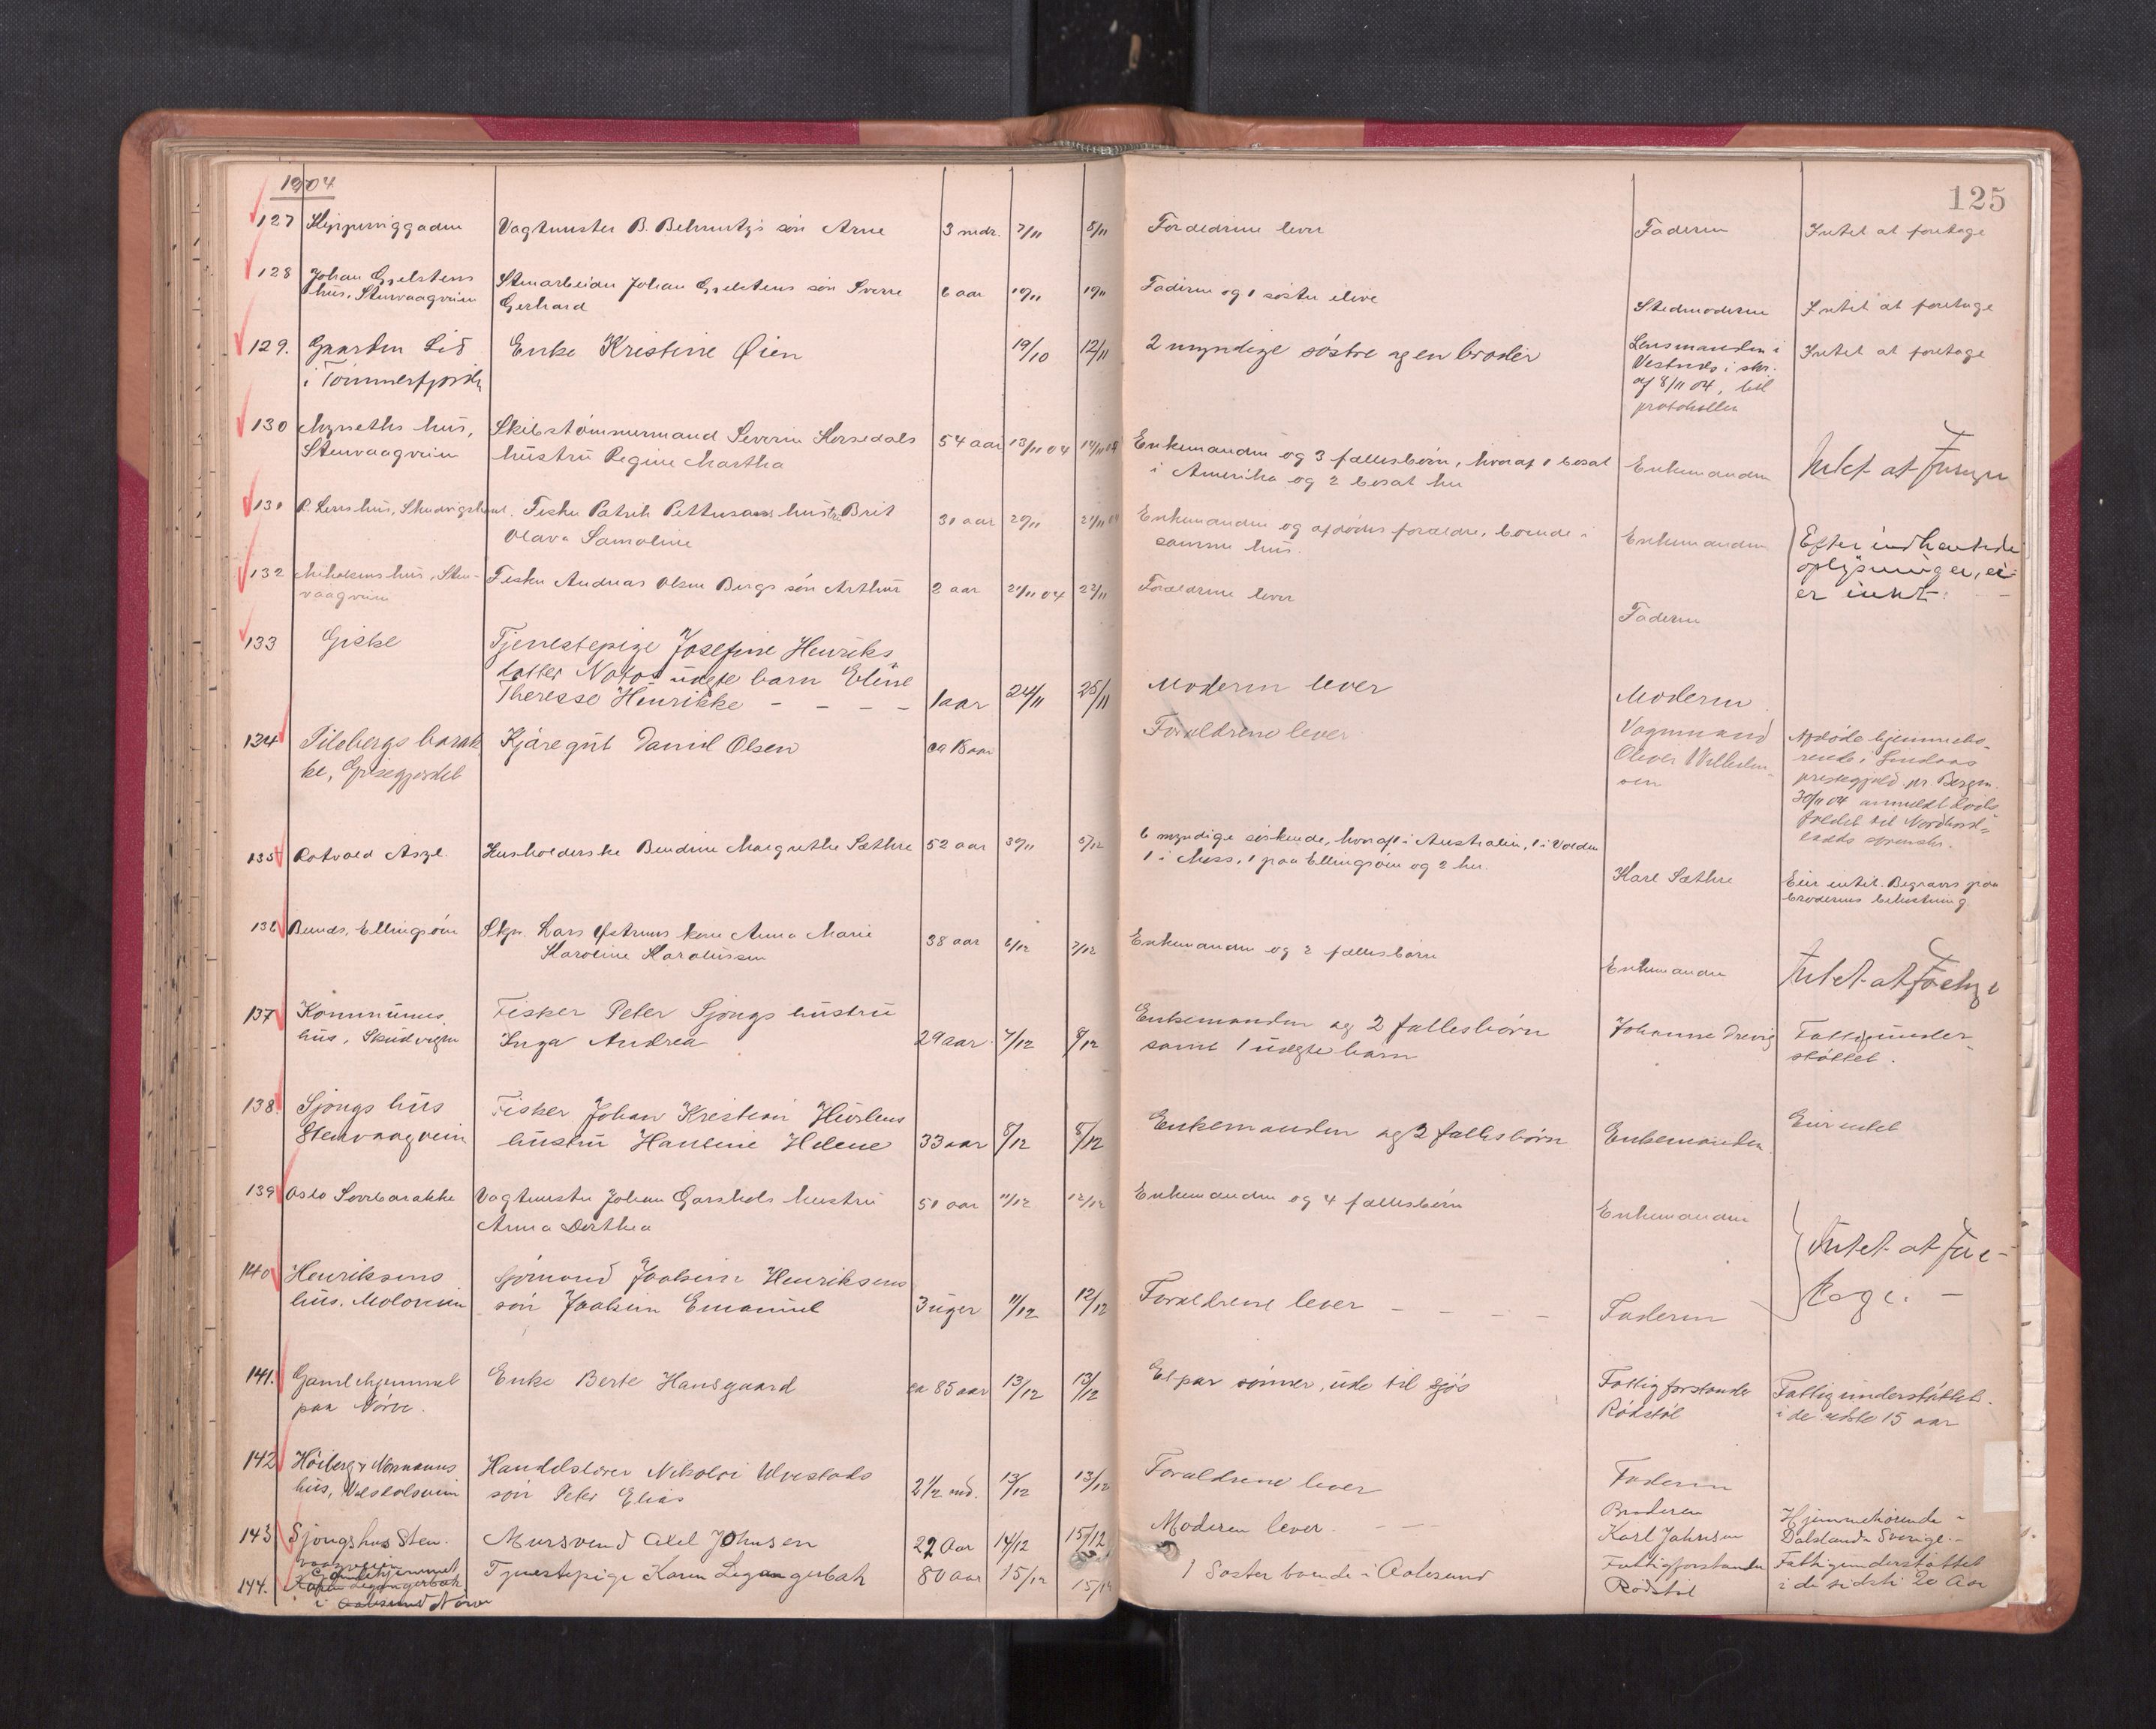 1904
125
127 Vagtmester B. søn Arne 3 mdr. 7/11 8/11 Forældrene lever Faderen Intet at foretage
128 Johan Gjelstens
hus, Stenvaagveien Stenarbeider Johan Gjelstens søn Sverre 6 aar 10/11 Faderen og 1 søster ilive Stedmoderen Intet at foretage
Gerhard
129. Gaarden Lid Enke Kristine Øien 19/10 12/11 2 myndige søstre og en broder Lensmanden i Intet at foretage
i Tommerfjorden Vestnes i skr.
af 8/11 04, til
protokollen
130 hus, Skibstømmermand Severin Korsedals 54 aar 13/11 04 14/11 04 Enkemanden og 3 fællesbørn, hvoraf 1 bosat Enkemanden Intet at
Stenvaagveien hustru Regine Martha i Amerika og 2 bosat her
131 hus, Fisker Patrik Pettersens hustru Brit 30 aar 20/11 21/11 04 Enkemanden og afdødes forældre, boende i Enkemanden Efter indhentede
Olava Samoline samme hus. oplysninger, ei
er intet.
132 hus, Sten- Fisker Andreas Olsen Bergs søn Arthur 2 aar 21/11 04 22/11 Forældrene lever Faderen
vaagveien
133 Giske Tjenestepige Josefine Henriks
datter uægte barn Eline
Therese Henrikke - - - - 1 aar 24/11 25/11 Moderen lever Moderen
134 barak Kjøregut Daniel Olsen ca aar Forældrene lever Vognmand Afdøde hjemmehø-
ke, Oliver Wilhelm- rende i Lindaas
sen prestegjeld pr Bergen.
30/11 04 anmeldt døds
faldet til Nordhord-
lands sorenskr.
135 Rotvold Asyl. Husholderske Bendine Margrethe Sæthre 52 aar 30/11 5/12 6 myndige søskende, hvoraf 1 i Australien, 1 i Volden Karl Sæthre Eier intet. Begraves paa
1 i 1 paa Ellingsøen og 2 her. broderens bekostning.
136 Ellingsøen Lars kone Anna Marie 38 aar 6/12 7/12 Enkemanden og 2 fællesbørn Enkemanden Intet at
Karoline Karoliussen
137 Kommunens Fisker Peter Sjongs hustru
hus, Inga Andrea 29 aar 7/12 8/12 Enkemanden og 2 fællesbørn Johanne Drevig Fattigunder-
samt 1 uægte barn støttet.
138. Sjongs hus Fisker Johan Kristian
Stenvaagvein hustru Hansine Helene 33 aar 8/12 8/12 Enkemanden og 2 fællesbørn Enkemanden. Eier intet
139 Vagtmester Johan Garshols hustru 50 aar 11/12 12/12 Enkemanden og 4 fællesbørn Enkemanden Intet at fore-
Anna Dorthea tage. -
140 Henriksens Sjømand Joakim Henriksens
hus. Moloveien søn Joakim Emanuel 3 uger 11/12 12/12 Forældrene lever - - - - Faderen
141. Gamlehjemmet Enke Berte Hansgaard ca 85 aar 13/12 13/12 Et par sønner, ude til sjøs Fattigforstander Fattigunderstøttet.
paa Nørve. Rødstøl i de sidste 15 aar
142 Høiberg & Normanns Handelslærer Nikolai Ulvestads 2½ md. 13/12 13/12 Forældrene lever Faderen
hus, søn Peter Elias
143 Sjongs hus Sten- Mursvend Axel Johnsen 22 Aar 14/12 15/12 Moderen lever. Broderen Hjemmehørende i
vaagveien Karl Johnsen Dalsland Sverige.-
144. Gamlehjemmet Tjenestepige Karen Legangerbak 80 aar 15/12 15/12 1 Søster boende i Aalesund Fattigforstander Fattigunderstøttet
i Aalesund Nørve Rødstøl i de sidste 20 Aar